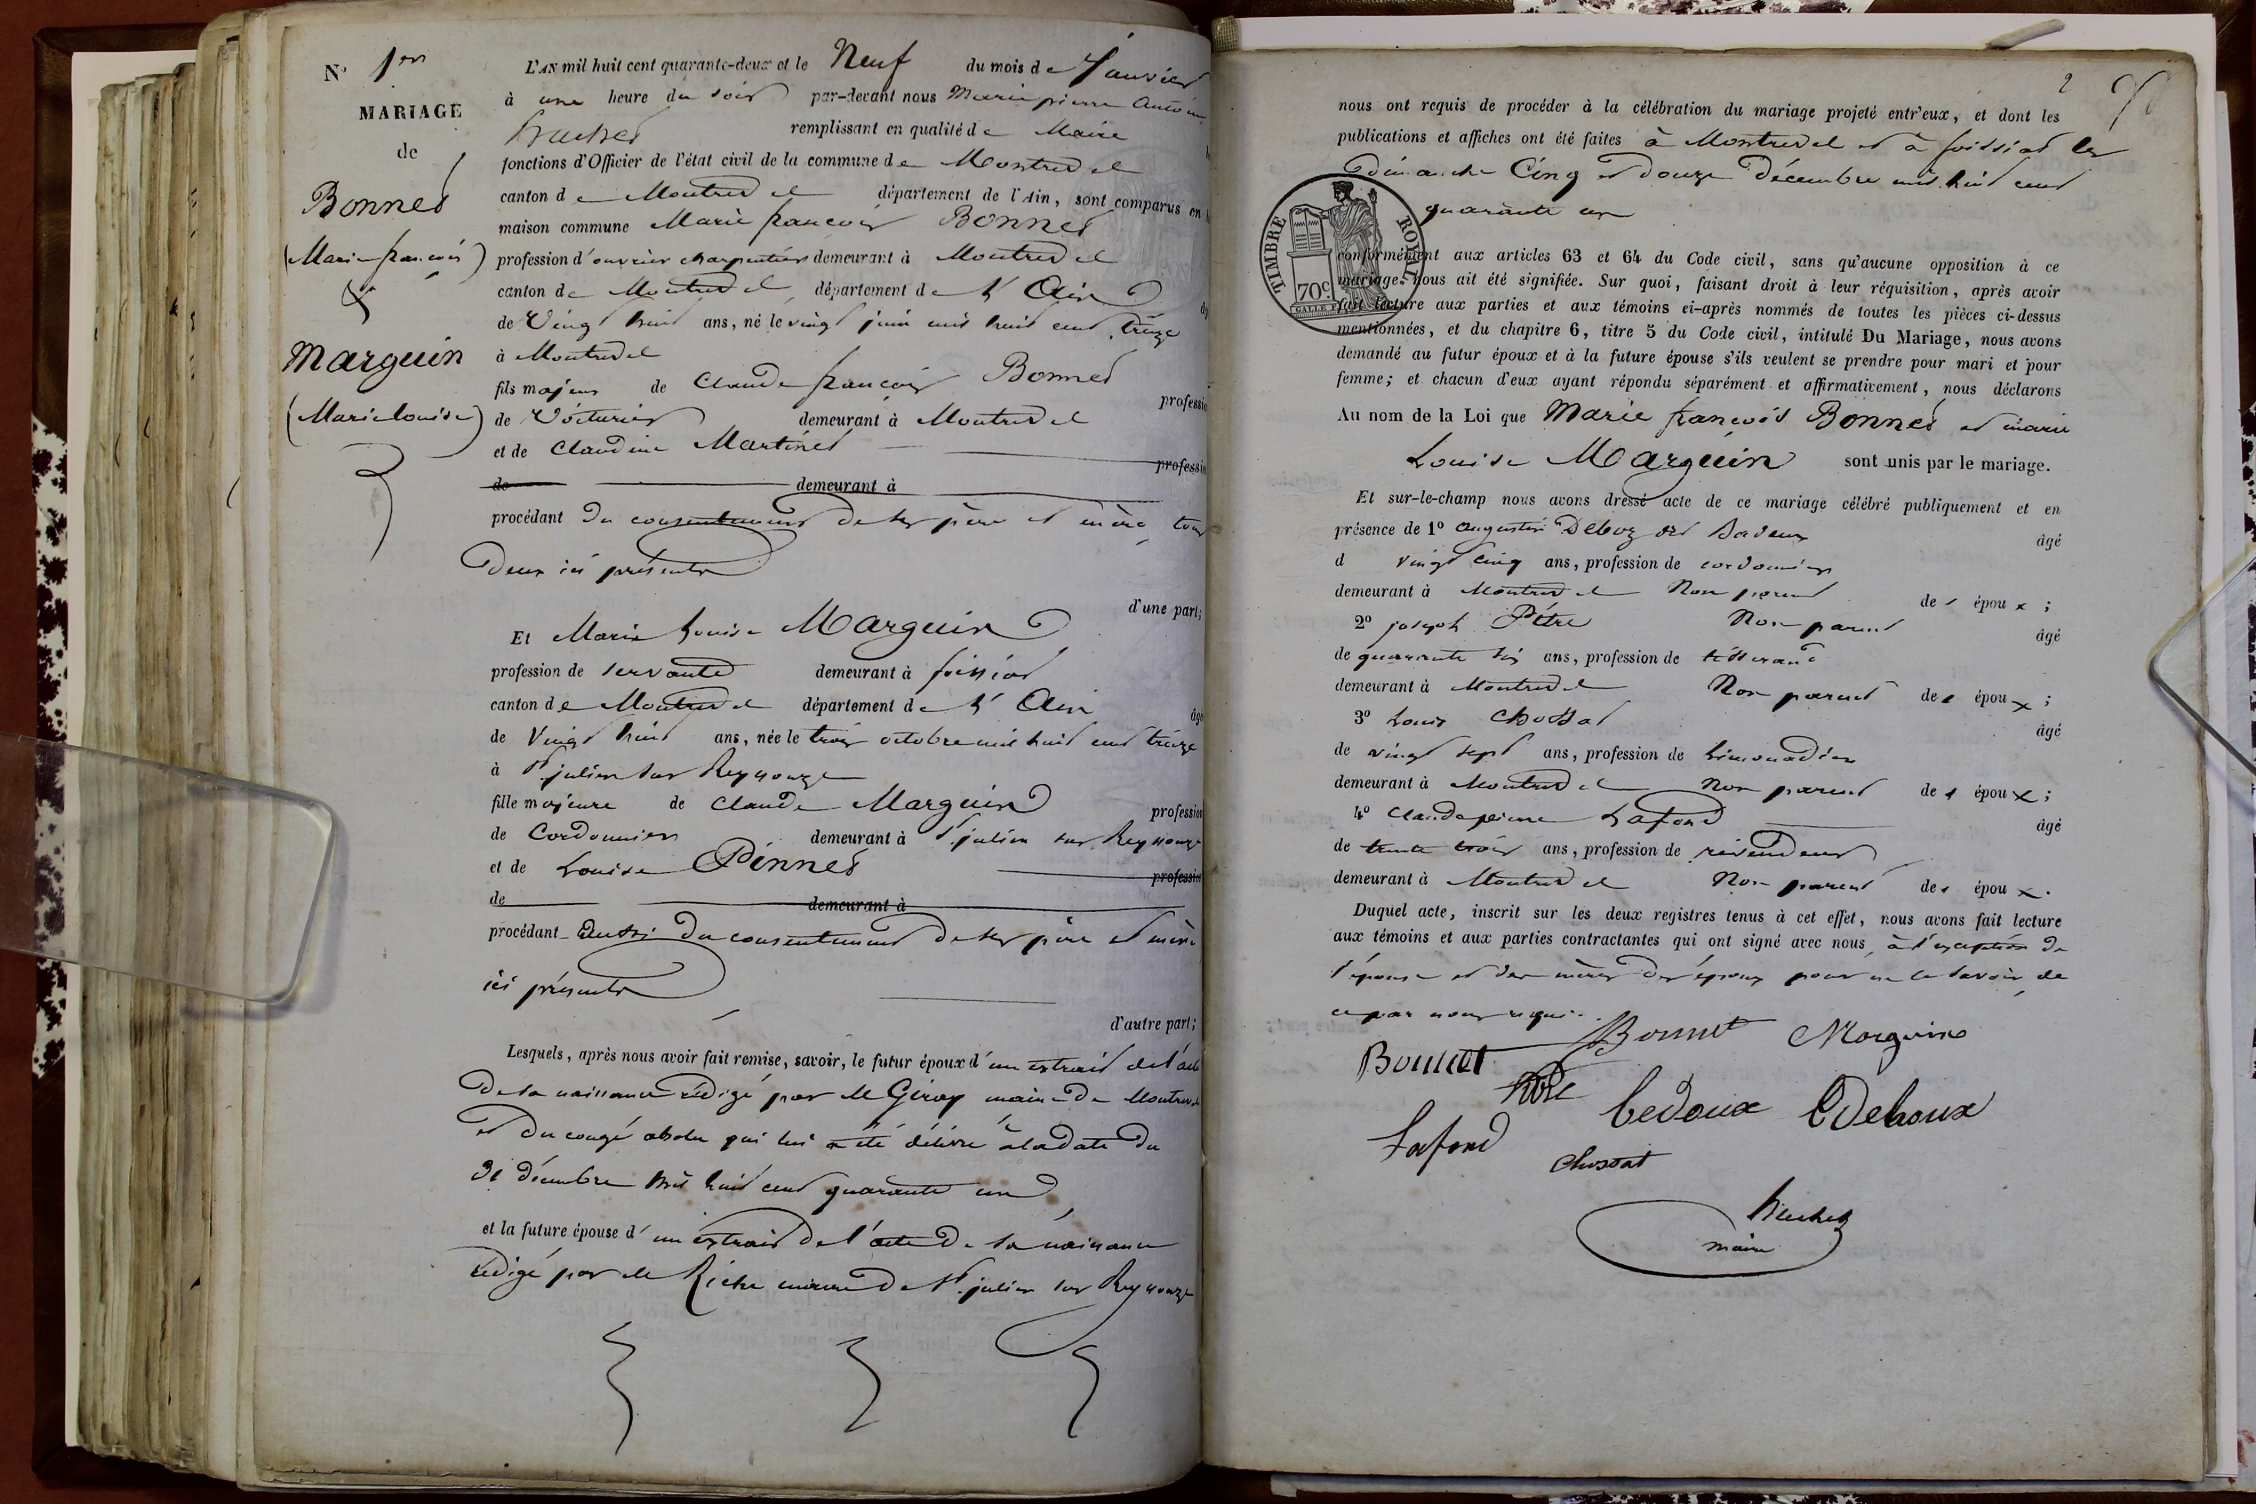 N° 1er
MARIAGE
de
Bonnet
(Marie françois)
&
Marguin
(Marie louise)
L'AN mil huit cent quarante-deux et le Neuf du mois de Janvier
à une heure du soir par-devant nous Marie pierre Antoine
remplissant en qualité de Maire
fonctions d'Officier de l'état civil de la commune de Montrevel
canton de Montrevel département de l'Ain, sont comparus en
maison commune Marie françois Bonnet
profession d'ouvrier charpentier demeurant à Montrevel
canton de Montrevel, département de L'Ain
de Vingt huit ans, né le vingt juin mil huit cent treize
à Montrevel
fils majeur de Claude françois Bonnet professio
de Voiturier demeurant à Montrevel
et de Claudine Martinet professio
de demeurant à
procédant du consentement de ses père et mère, tous
deux ici présents
d'une part;
Et Marie Louise Marguin
profession de servante demeurant à foissiat
canton de Montrevel département de L'Ain âgé
de Vingt huit ans, née le trois octobre mil huit cent treize
à St julien sur Reyssouze
fille majeure de Claude Marguin profession
de Cordonnier demeurant à St julien sur Reyssouze
et de Louise Pinnet profession
de demeurant à
procédant aussi du consentement de ses père et mère
ici présents
d'autre part;
Lesquels, après nous avoir fait remise, savoir, le futur époux d'un extrait de l'acte
de sa naissance rédigé par Mr Giroy maire de Montrevel
et du congé absolu qui lui a été délivré à la date du
31 décembre mil huit cent quarante un
et la future épouse d'un extrait de l'acte de sa naissance
rédigé par Mr Riche maire de St julien sur Reyssouze
2
nous ont requis de procéder à la célébration du mariage projeté entr'eux, et dont les
publications et affiches ont été faites à Montrevel et à foissiat les
dimanche Cinq et douze décembre mil huit cent
quarante un
TIMBRE ROYAL
70c.
conformément aux articles 63 et 64 du Code civil, sans qu'aucune opposition à ce
mariage nous ait été signifiée. Sur quoi, faisant droit à leur réquisition, après avoir
fait lecture aux parties et aux témoins ci-après nommés de toutes les pièces ci-dessus
mentionnées, et du chapitre 6, titre 5 du Code civil, intitulé Du Mariage, nous avons
demandé au futur époux et à la future épouse s'ils veulent se prendre pour mari et pour
femme; et chacun d'eux ayant répondu séparément et affirmativement, nous déclarons
Au nom de la Loi que Marie françois Bonnet et marie
Louise Marguin sont unis par le mariage.
Et sur-le-champ nous avons dressé acte de ce mariage célébré publiquement et en
présence de 1° augustin âgé
d vingt cinq ans, profession de cordonnier
demeurant à Montrevel Non parent des époux;
2° joseph Pitre Non parent âgé
de quarante six ans, profession de tisserand
demeurant à Montrevel Non parent des époux;
3° Louis Chossat âgé
de vingt sept ans, profession de Limonadier
demeurant à Montrevel Non parent des époux;
4° Claude pierre Lafond âgé
de trente trois ans, profession de revendeur
demeurant à Montrevel Non parent des époux.
Duquel acte, inscrit sur les deux registres tenus à cet effet, nous avons fait lecture
aux témoins et aux parties contractantes qui ont signé avec nous, à l'exception de
l'épouse et des mères des époux pour ne le savoir, de
ce par nous requis.
Bonnet Bonnet Marguin
Pitre
Lafond
Chossat
maire